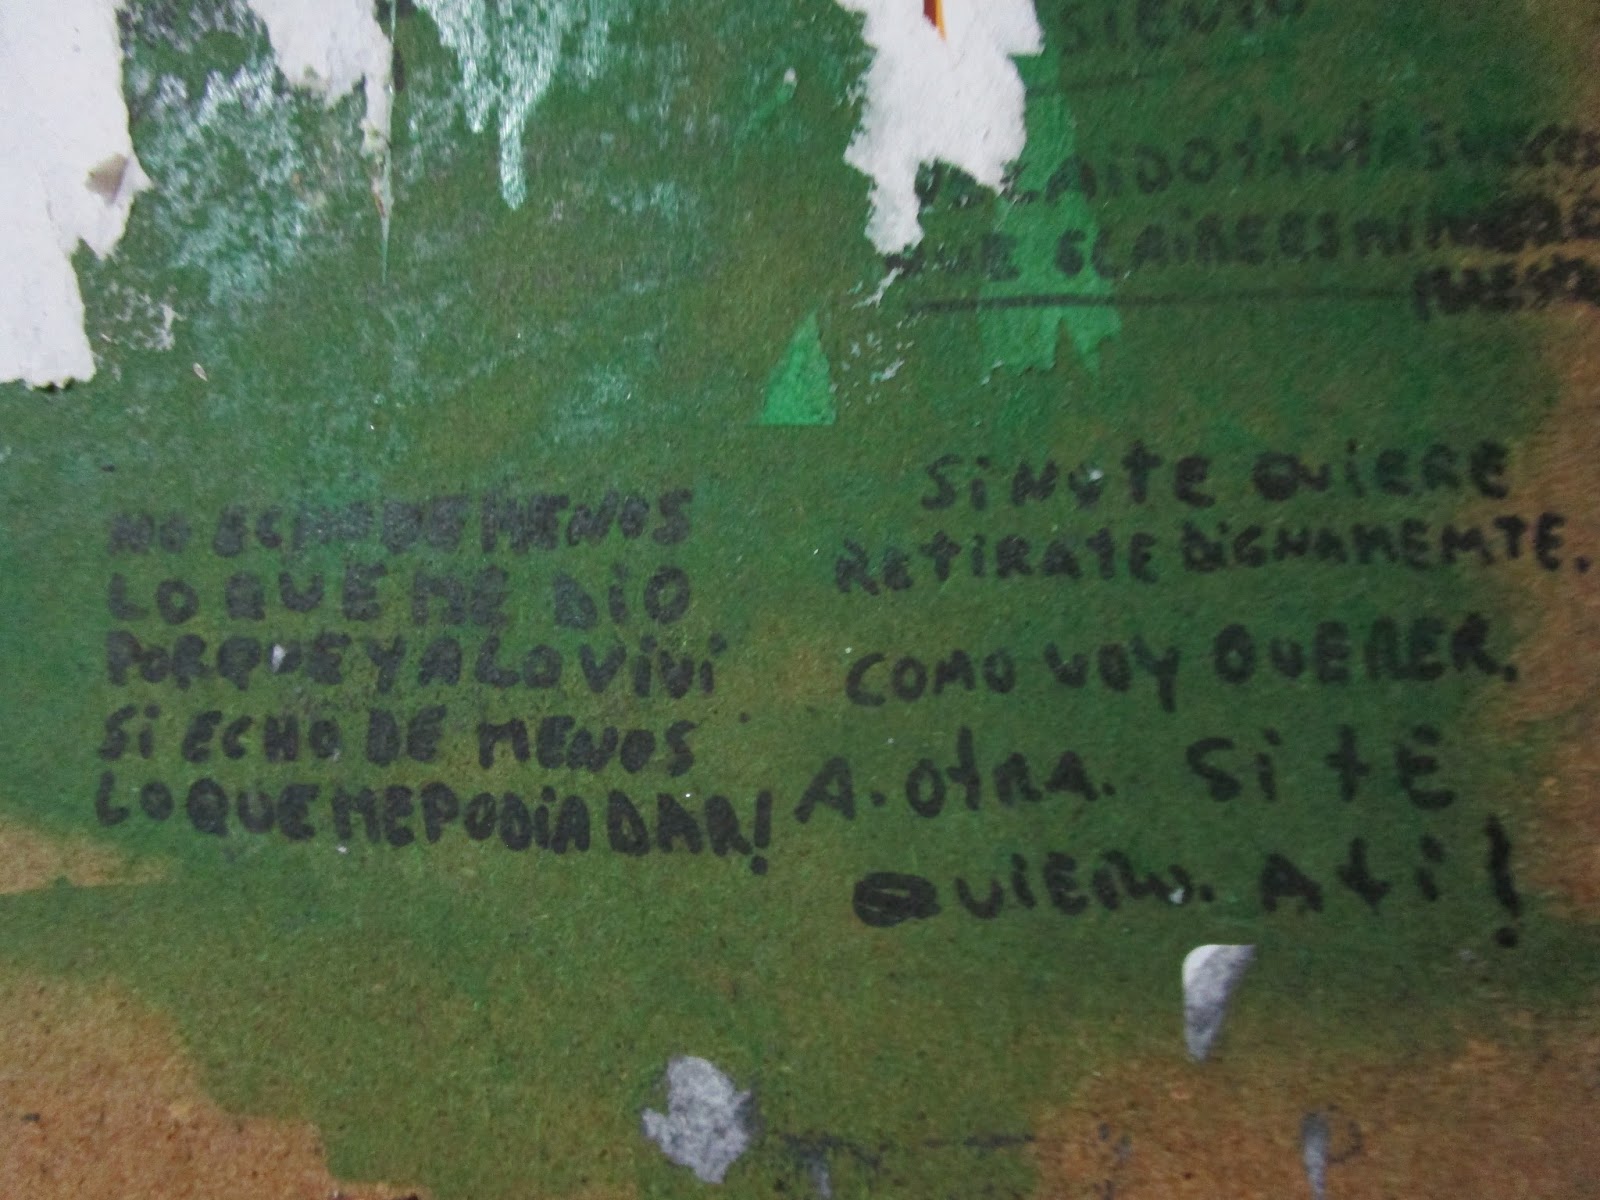 SIENTO
CAIDO tANtAS VECES
QUE EL AIRE ES MI
NO ECHO DE MENOS
LO QUE ME DIO
PORQUE YA LO VIVI
Si ECHO DE MENOS
LO QUE ME PODiA DAR!
Si NO tE QUiERE
REtiRAtE DiGNAMEMTE.
COMO VOY QUERER.
A. OtRA. Si tE
QUiERO. A ti!